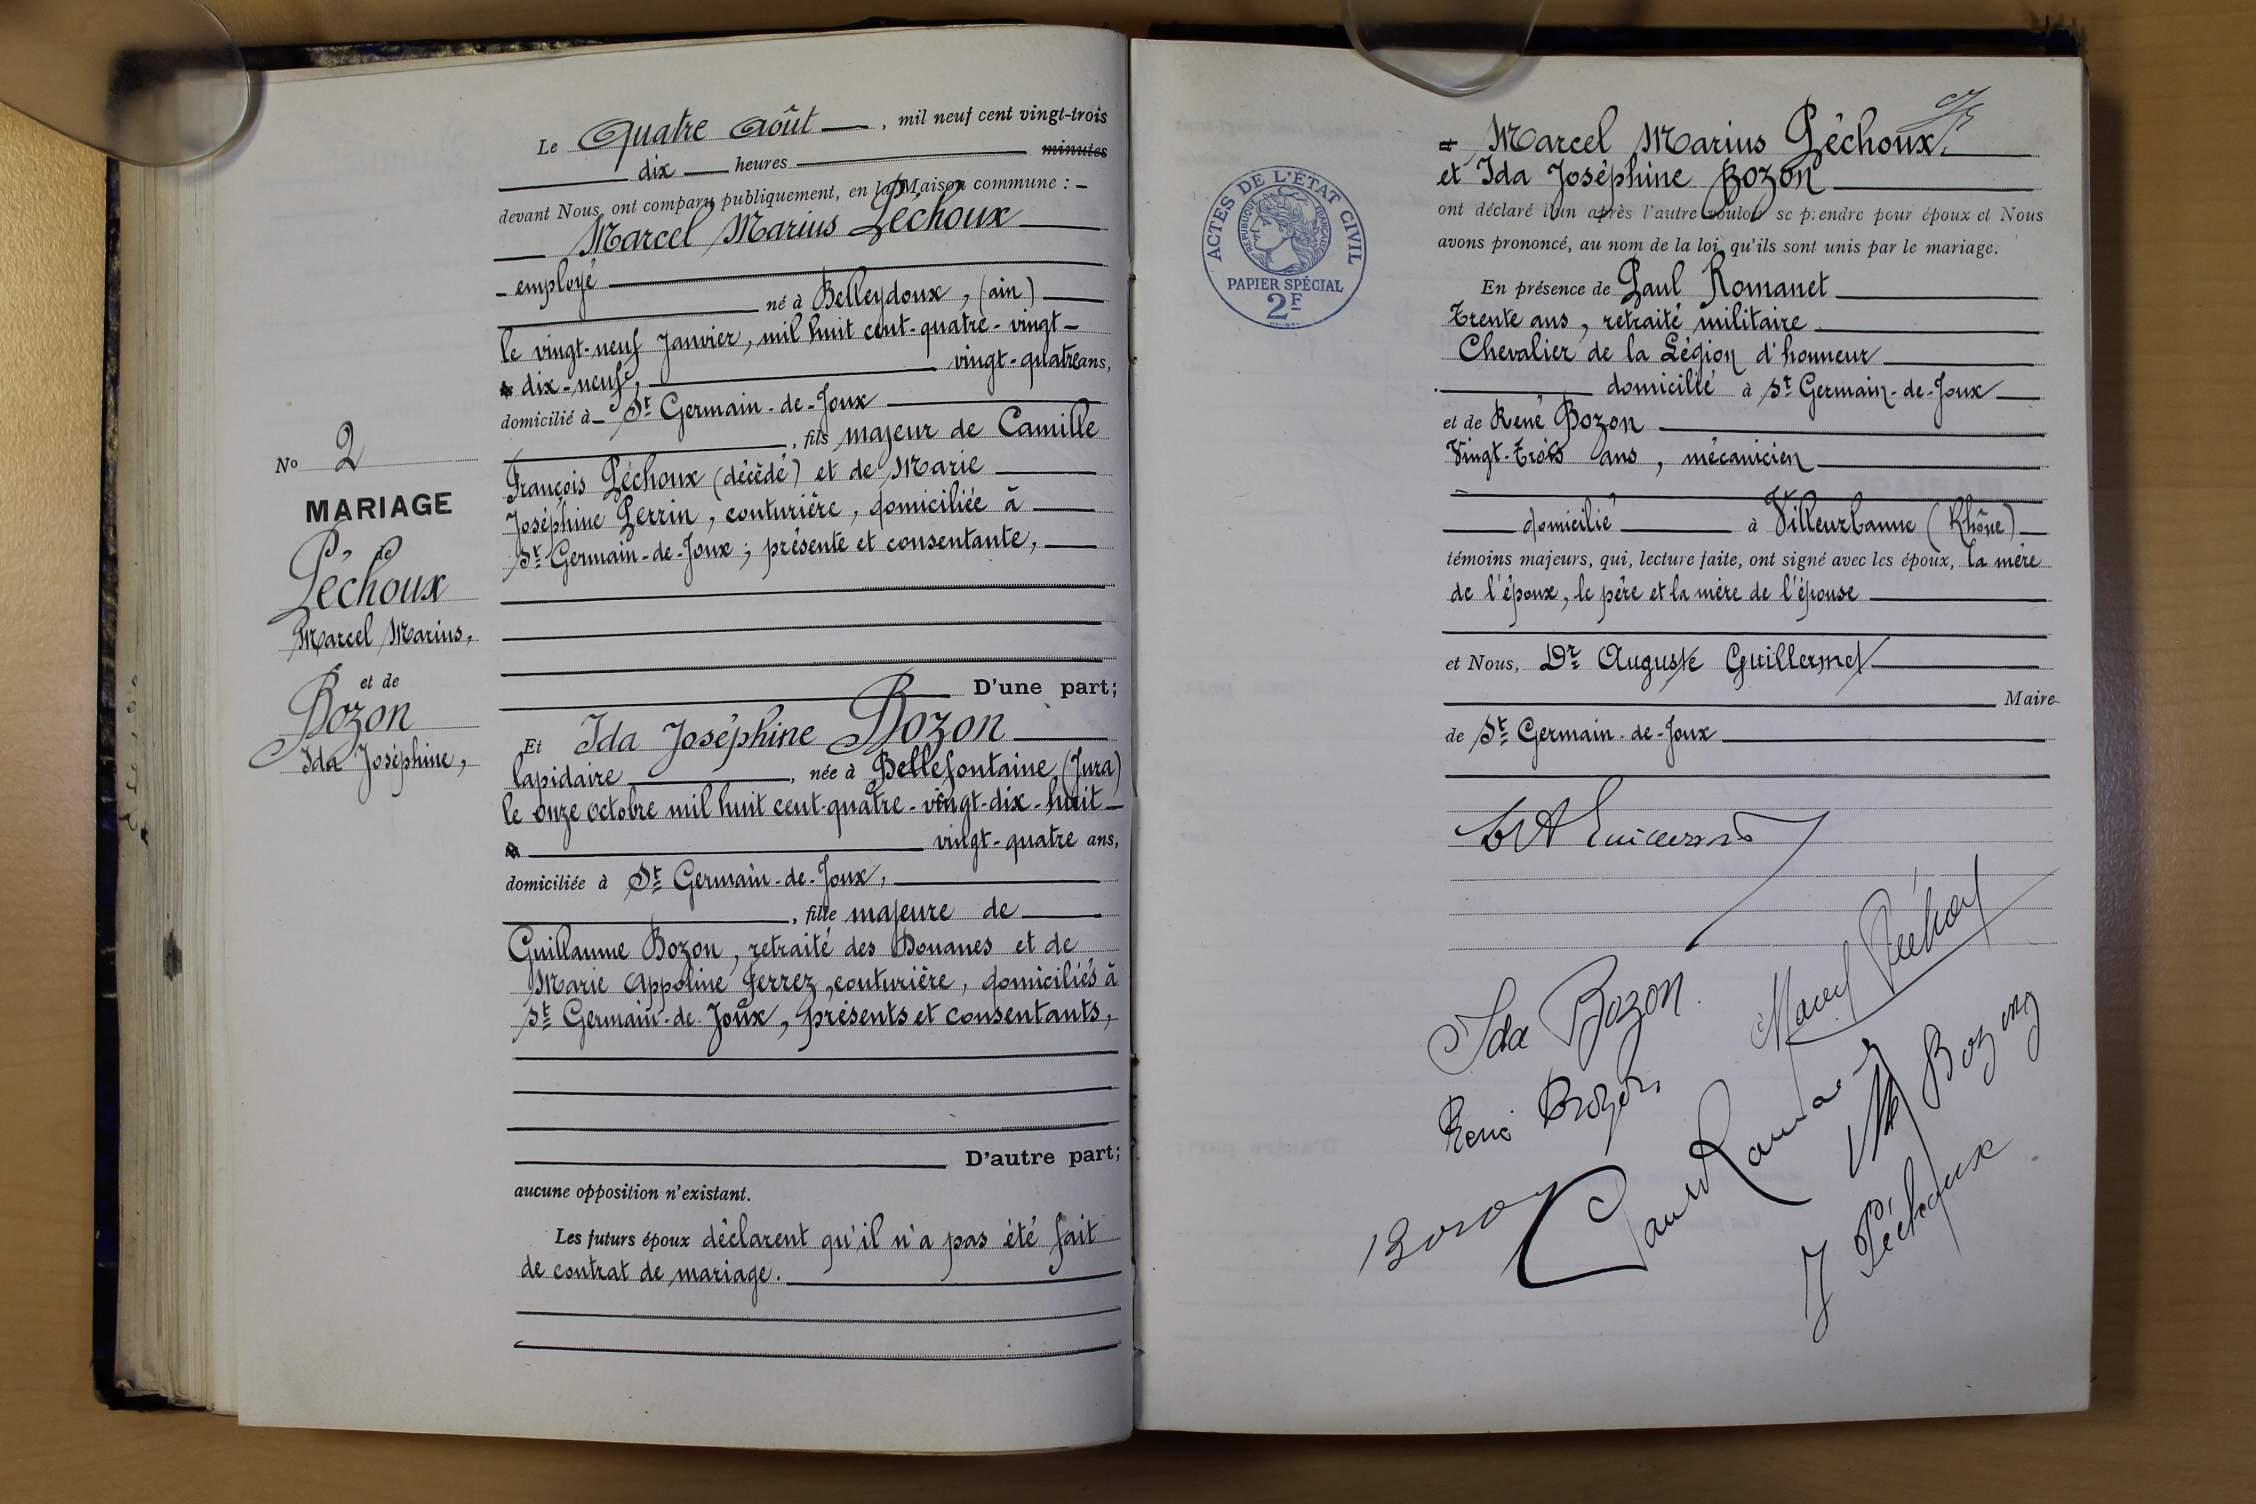 Le Quatre Août, mil neuf cent vingt-trois
dix heures minutes
devant Nous ont comparu publiquement, en la Maison commune :
Marcel Marius Péchoux
employé
né à Belleydoux, (ain)
le vingt-neuf Janvier, mil huit cent-quatre-vingt-
dix-neuf, vingt-quatre ans,
domicilié à St Germain-de-Joux
, fils majeur de Camille
François Péchoux (décédé) et de Marie
Joséphine Perrin, couturière, domiciliée à
St Germain-de-Joux ; présente et consentante,
D'une part;
No 2
MARIAGE
de
Péchoux
Marcel Marius,
et de
Bozon
Ida Joséphine,
Et Ida Joséphine Bozon
lapidaire, née à Bellefontaine (Jura)
le onze octobre mil huit cent-quatre-vingt-dix-huit
vingt-quatre ans,
domiciliée à St Germain-de-Joux,
, fille majeure de
Guillaume Bozon, retraité des Douanes et de
Marie Appoline Ferrez, couturière, domiciliés à
St Germain-de-Joux, présents et consentants,
D'autre part;
aucune opposition n'existant.
Les futurs époux déclarent qu'il n'a pas été fait
de contrat de mariage.
ACTES DE L'ÉTAT CIVIL
RÉPUBLIQUE FRANÇAISE
PAPIER SPÉCIAL
2F
Marcel Marius Péchoux
et Ida Joséphine Bozon
ont déclaré l'un après l'autre vouloir se prendre pour époux et Nous
avons prononcé, au nom de la loi, qu'ils sont unis par le mariage.
En présence de Paul Romanet
Trente ans, retraité militaire
Chevalier de la Légion d'honneur
domicilié à St Germain-de-Joux
et de René Bozon
Vingt-trois ans, mécanicien
domicilié à Villeurbanne (Rhône)
témoins majeurs, qui, lecture faite, ont signé avec les époux, la mère
de l'époux, le père et la mère de l'épouse
et Nous, Dr Auguste Guillermet
Maire
de St Germain-de-Joux
Marcel Péchoux
Ida Bozon
M Bozon
René Bozon
Paul Romanet
Bozon
J Péchoux